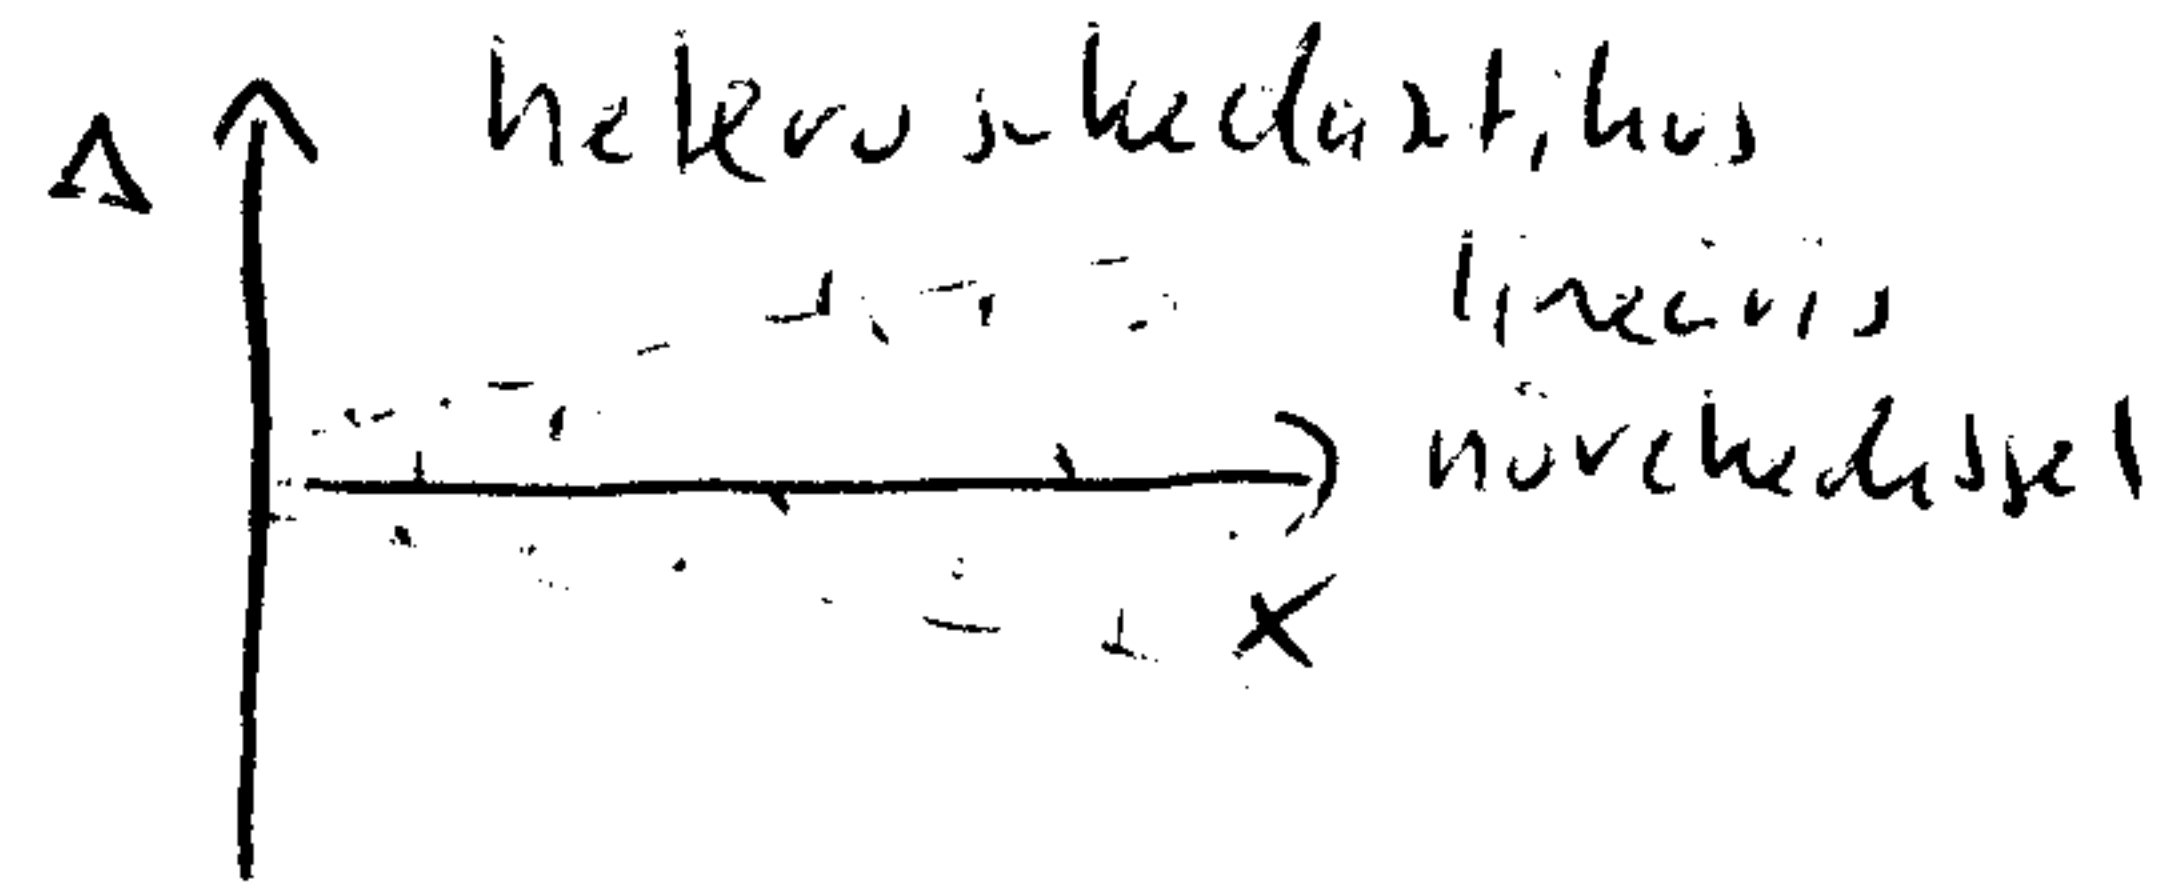 heteroskedasztikus
Δ
lineáris
növekedéssel
x